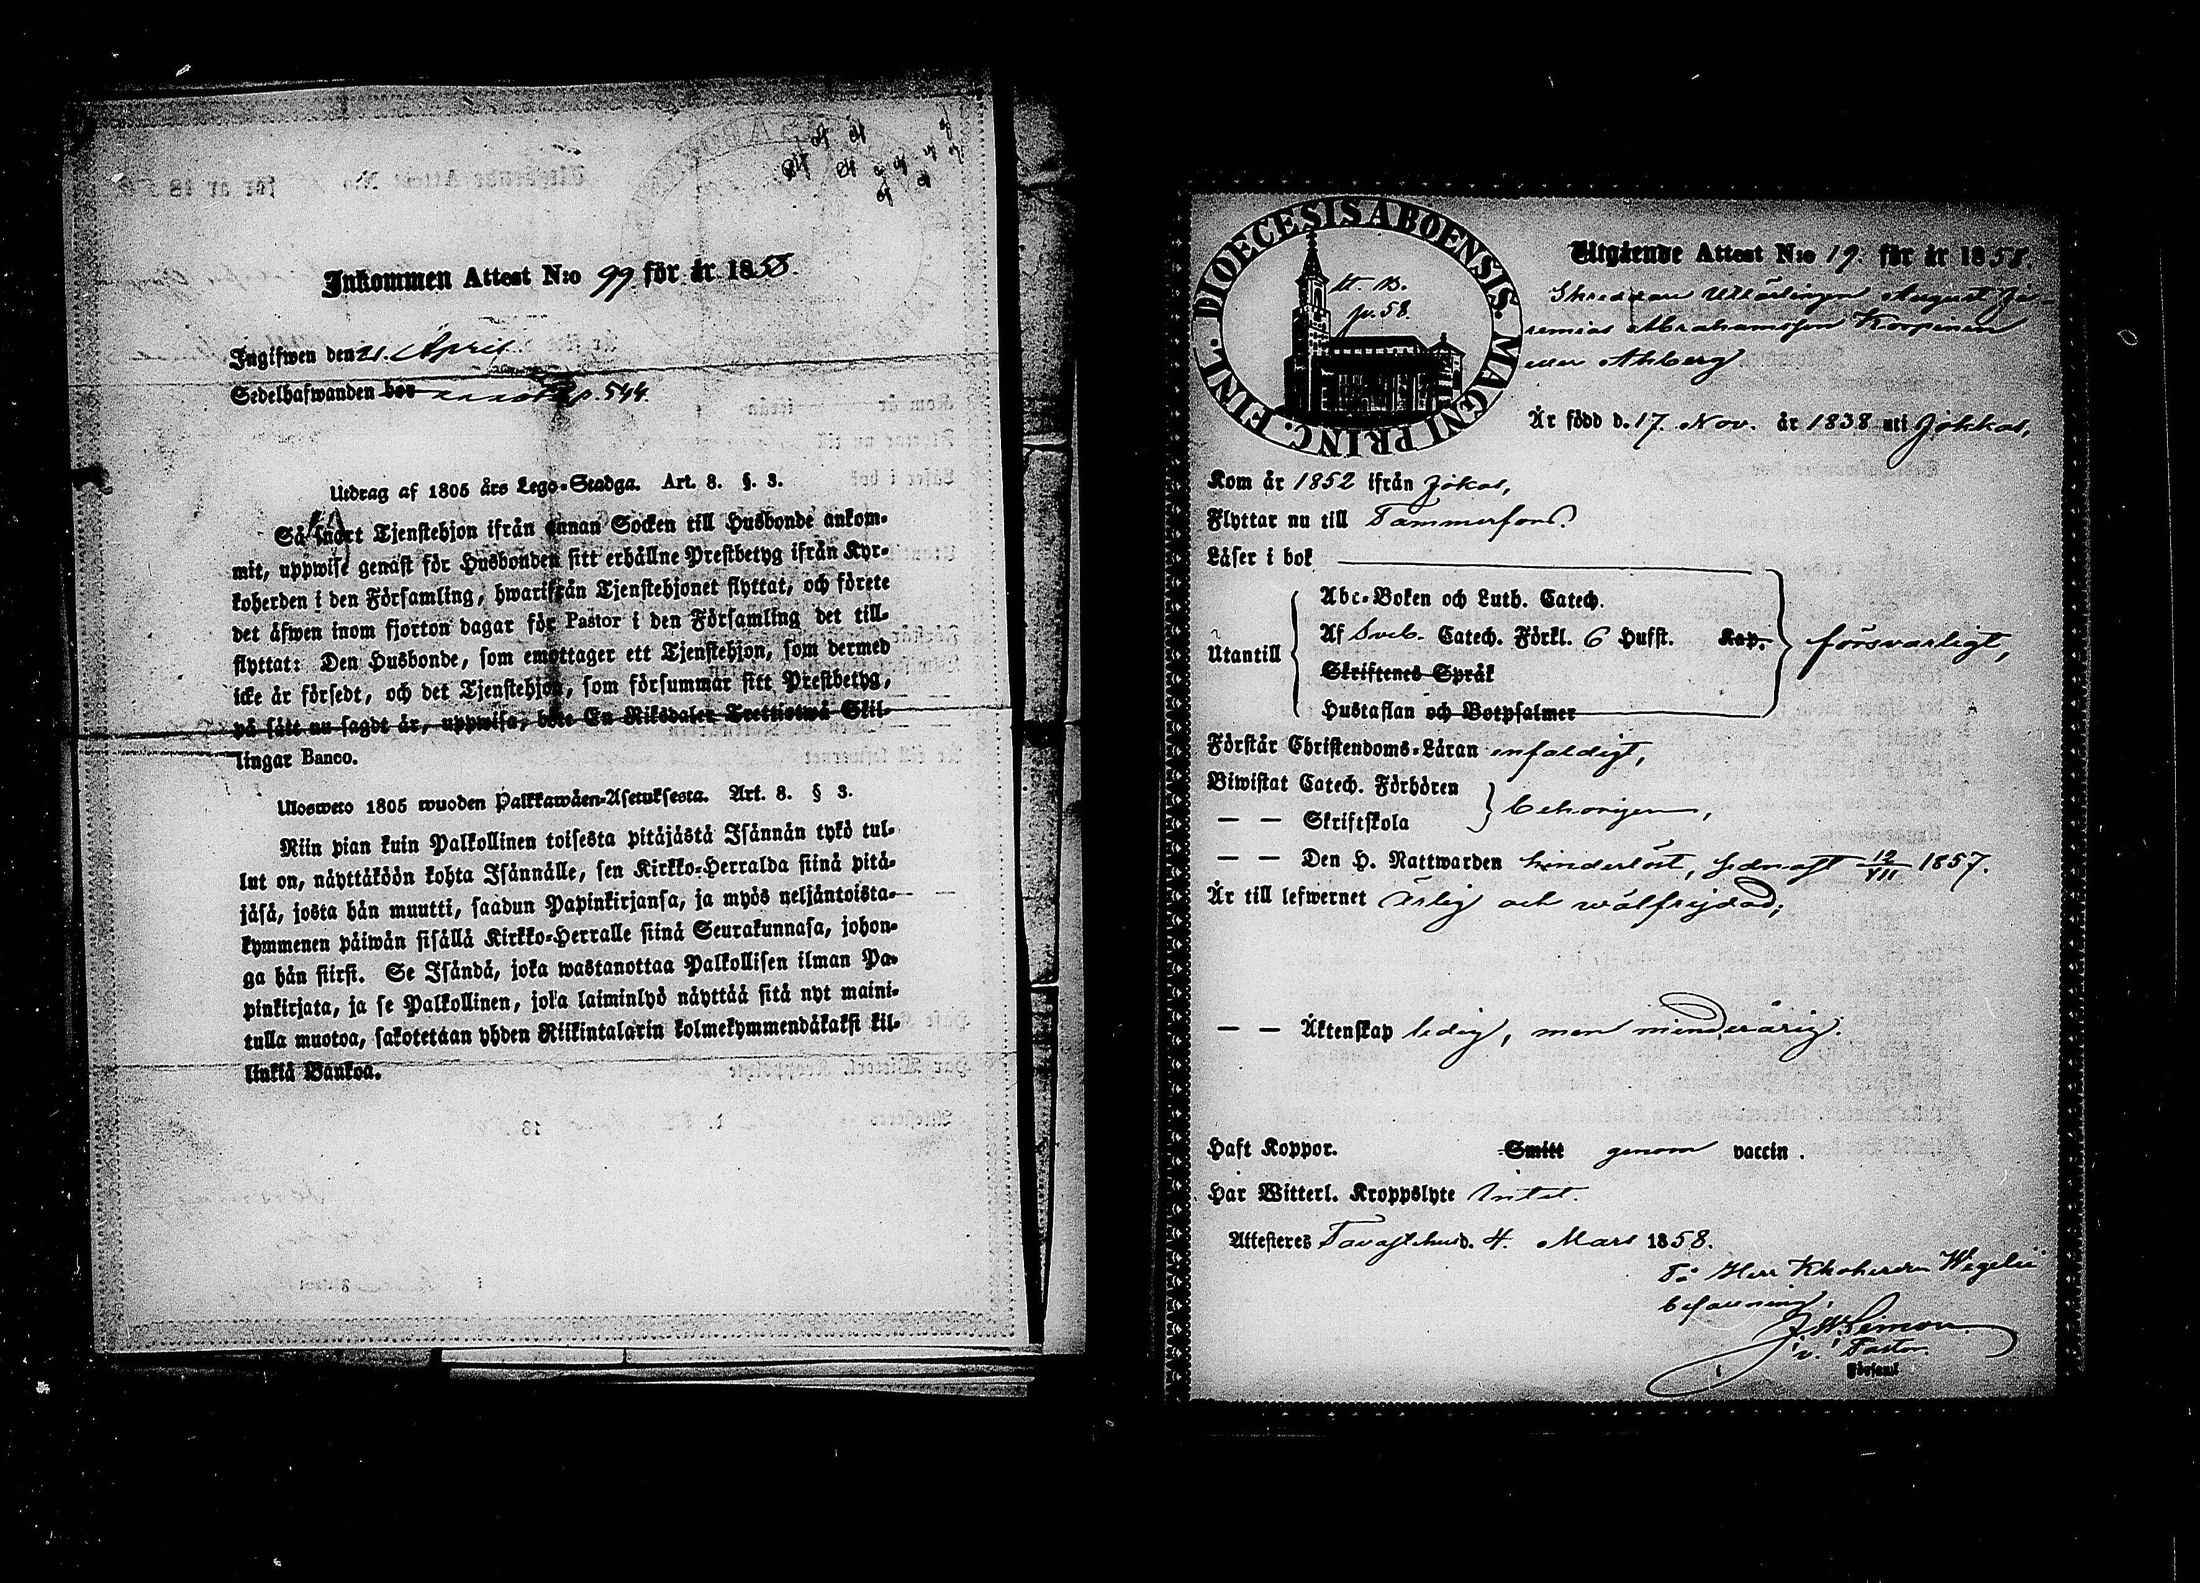 Inkommen Attest N:o 99 för år 1858.
Ingifwen den 21. April.
Sedelhafwanden bor p. 544.
Utdrag af 1805 års Lego-Stadga. Art. 8. §. 3.
Så snart Tjenstehjon ifrån annan Socken till Husbonde ankom-
mit, uppwise genast för Husbonden sitt erhållne Prestbetyg ifrån Kyr-
koherden i den Församling, hwarifrån Tjenstehjonet flyttat, och förete
det äfwen inom fjorton dagar för Pastor i den Församling det till-
flyttat: Den Husbonde, som emottager ett Tjenstehjon, som dermed
icke är försedt, och det Tjenstehjon, som försummar sitt Prestbetyg,
på sätt nu sagdt är, uppwisa, böte En Riksdaler Trettiotwå Skil-
lingar Banco.
Ulosweto 1805 wuoden Palkkawäen-Asetuksesta. Art. 8. § 3.
Niin pian kuin Palkollinen toisesta pitäjästä Isännän tykö tul-
lut on, näyttäköön kohta Isännälle, sen Kirkko-Herralda siinä pitä-
jäsä, josta hän muutti, saadun Papinkirjansa, ja myös neljäntoista-
kymmenen päiwän sisällä Kirkko-Herralle siinä Seurakunnasa, johon-
ga hän siirsi. Se Isändä, joka wastanottaa Palkollisen ilman Pa-
pinkirjata, ja se Palkollinen, joka laiminlyö näyttää sitä nyt maini-
tulla muotoa, sakotetaan yhden Riikintalarin kolmekymmendäkaksi kil-
linkiä Bankoa.
DIOECESIS ABOENSIS. MAGNI PRINC. FINL.
H. B.
p. 58.
Utgående Attest N:o 19 för år 1858.
Skräddare Utlärlingen August Je-
remias Abrahamsson Korpinen
eller Ahlberg
Är född d. 17. Nov. år 1838 uti Jokkas,
Kom år 1852 ifrån Jokas,
Flyttar nu till Tammerfors.
Läser i bok
Utantill
Abc-Boken och Luth. Catech.
Af Sveb. Catech. Förkl. 6 Hufst. Kap.
Skriftenes Språk
Hustaflan och Botpsalmer
försvarligt,
Förstår Christendoms-Läran enfaldigt,
Biwistat Catech. Förhören
— — Skriftskola
behörigen,
— — Den H. Nattwarden hinderlöst, sednast 12/VII 1857.
Är till lefwernet ärlig och wälfrejdad;
— — Äktenskap ledig, men minderårig.
Haft Koppor. Smitt genom vaccin.
Har Witterl. Kroppslyte Intet.
Attesteres Tavastehus d. 4. Mars 1858.
På Herr Kkoherden Wegelii
befallning,
v. Pastor.
i Församl